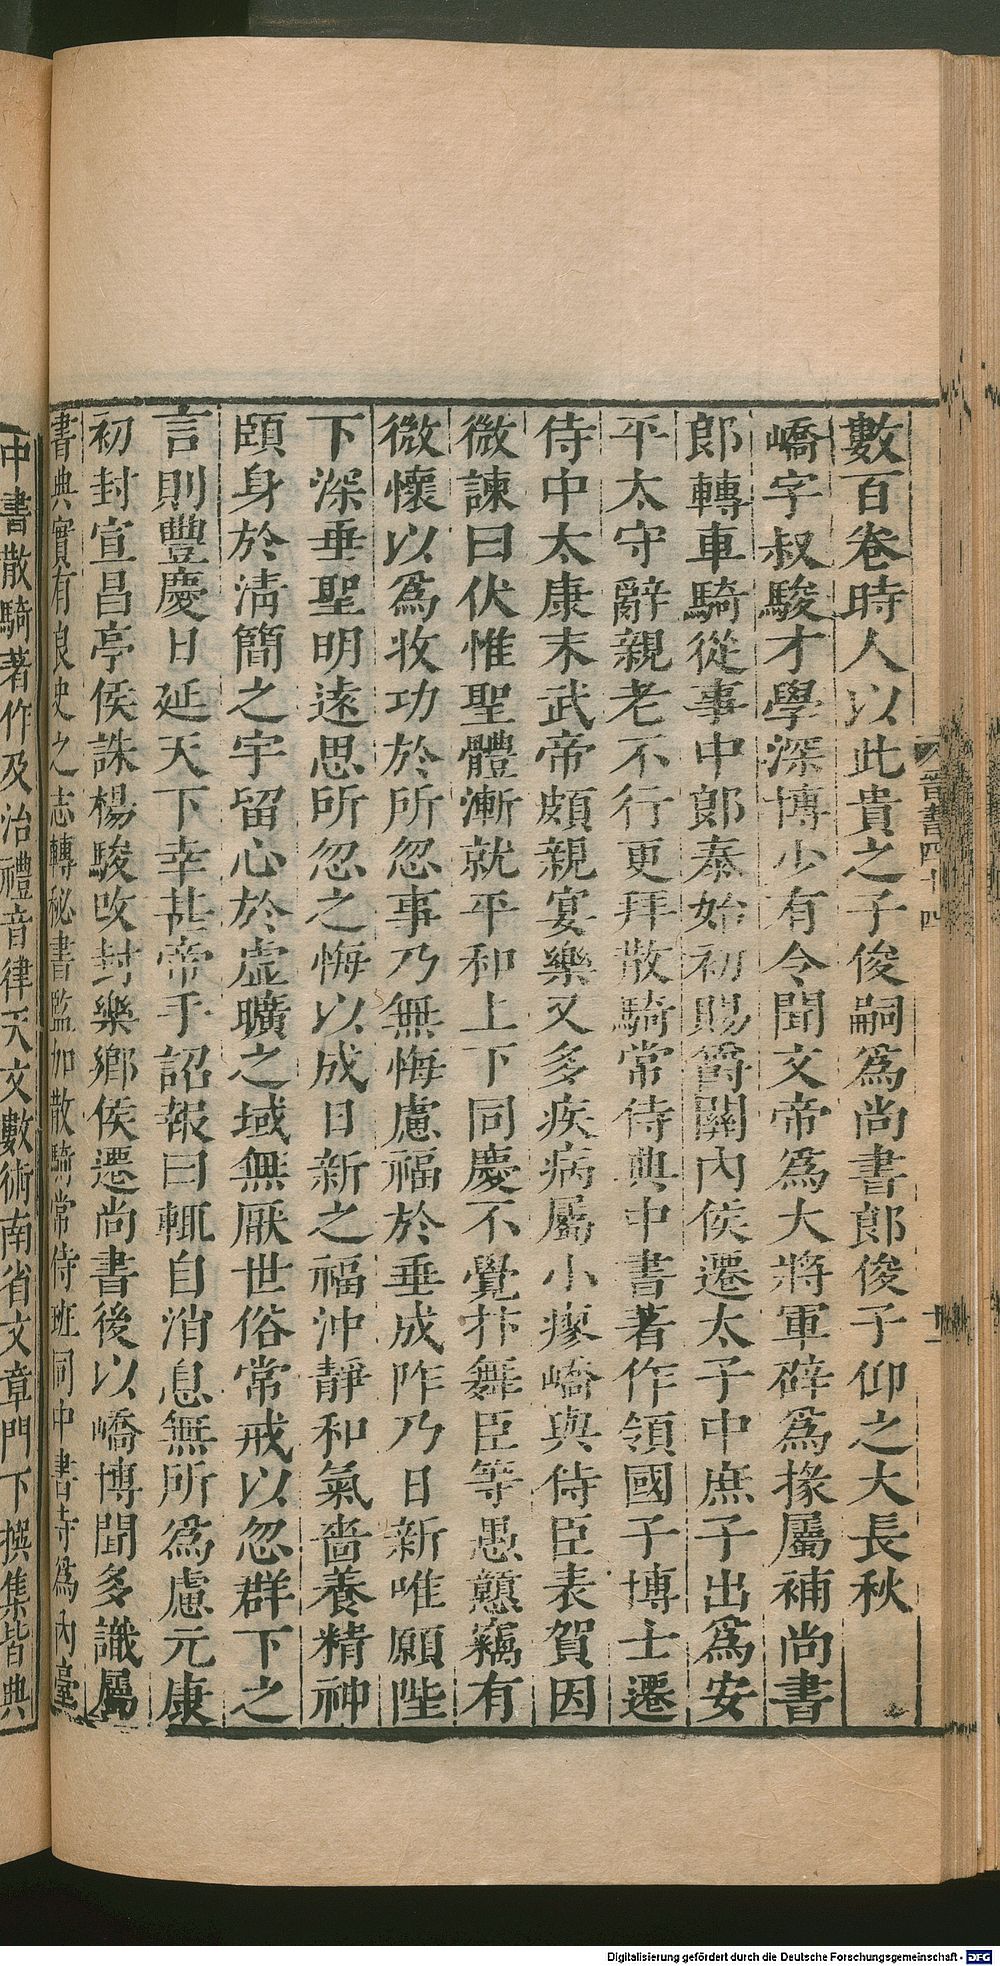 晉書四十四
十一
數百卷時人以此貴之子俊嗣爲尚書郎俊子仰之大長秋
嶠字叔駿才學深博少有令聞文帝爲大將軍辟爲掾屬補尚書
郎轉車騎從事中郎泰始初賜爵關內侯遷太子中庶子出爲安
平太守辭親老不行更拜散騎常侍典中書著作領國子博士遷
侍中太康末武帝頗親宴樂又多疾病屬小瘳嶠與侍臣表賀因
微諫曰伏惟聖體漸就平和上下同慶不覺抃舞臣等愚戇竊有
微懷以爲收功於所忽事乃無悔慮福於垂成祚乃日新唯願陛
下深垂聖明遠思所忽之悔以成日新之福沖靜和氣嗇養精神
頤身於淸簡之宇留心於虛曠之域無厭世俗常戒以忽群下之
言則豐慶日延天下幸甚帝手詔報曰輒自消息無所爲慮元康
初封宣昌亭侯誅楊駿改封樂鄉侯遷尚書後以嶠博聞多識屬
書典實有良史之志轉秘書監加散騎常侍班同中書寺爲內臺
中書散騎著作及治禮音律天文數術南省文章門下撰集皆典
Digitalisierung gefördert durch die Deutsche Forschungsgemeinschaft - DFG